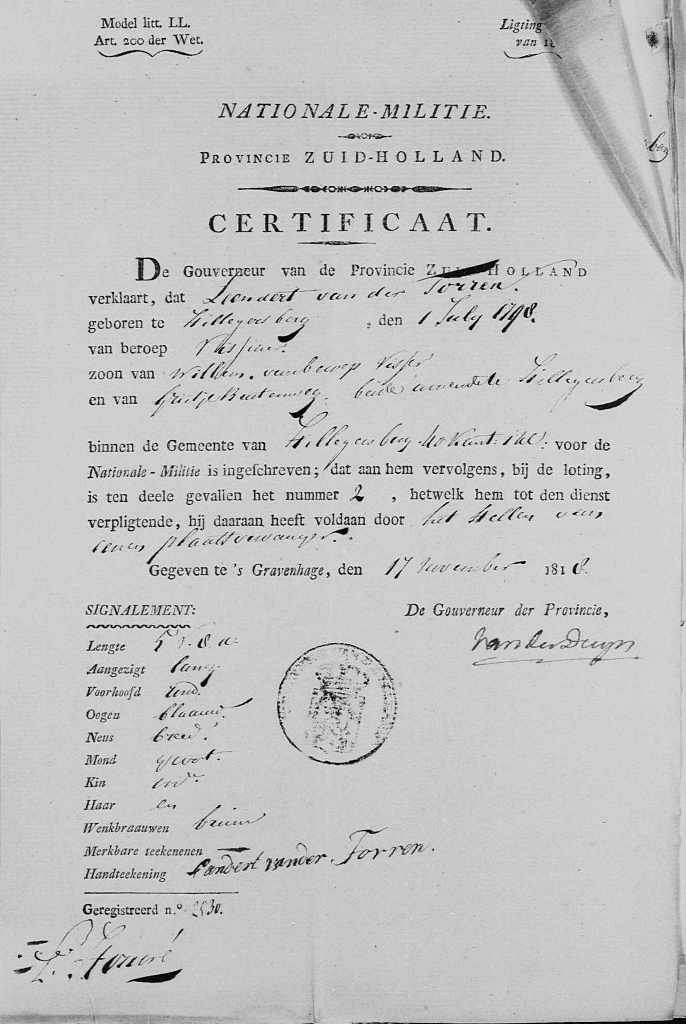 Model litt. LL.
Art. 200 der Wet.
Ligting
van 18
NATIONALE-MILITIE.
PROVINCIE ZUID-HOLLAND.
CERTIFICAAT.
De Gouverneur van de Provincie ZUID-HOLLAND
verklaart, dat Leendert van der Torren.
geboren te Hillegersberg, den 1 July 1798.
van beroep
zoon van Willem. van beroep visser
en van beide Hillegersberg
binnen de Gemeente van Hillegersberg voor de
Nationale-Militie is ingeschreven; dat aan hem vervolgens, bij de loting,
is ten deele gevallen het nummer 2, hetwelk hem tot den dienst
verpligtende, hij daaraan heeft voldaan door het stellen van
eenen plaatsvervanger.
Gegeven te 's Gravenhage, den 17 November 1818.
SIGNALEMENT:
De Gouverneur der Provincie,
van der Duyn
Lengte 5 v. 8 d.
Aangezigt lang
Voorhoofd rond.
Oogen blaauw.
Neus breed.
Mond groot.
Kin
Haar en
Wenkbraauwen bruin
Merkbare teekenenen
Handteekening Landert van der Torren.
Geregistreerd n.º 2530.